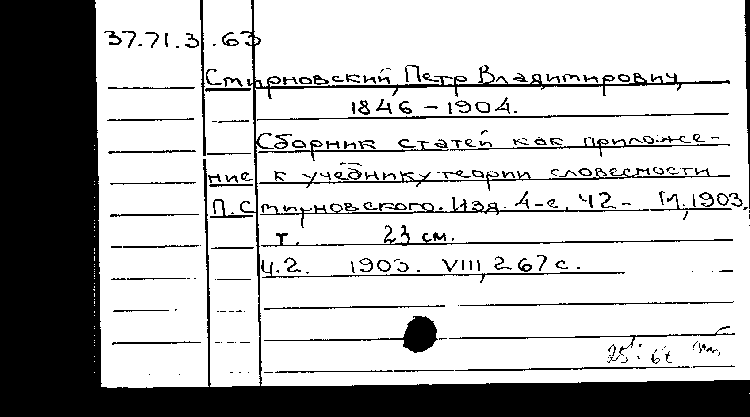 37.71.3.63
Смирновский, Петр Владимирович,
1846-1904.
Сборник статей как приложе-
ние к учебнику теории словесности
П. Смирновского. Изд. 4-е. Ч2- М, 1903.
т. 23 см.
Ч.2. 1903. VIII, 267 с.